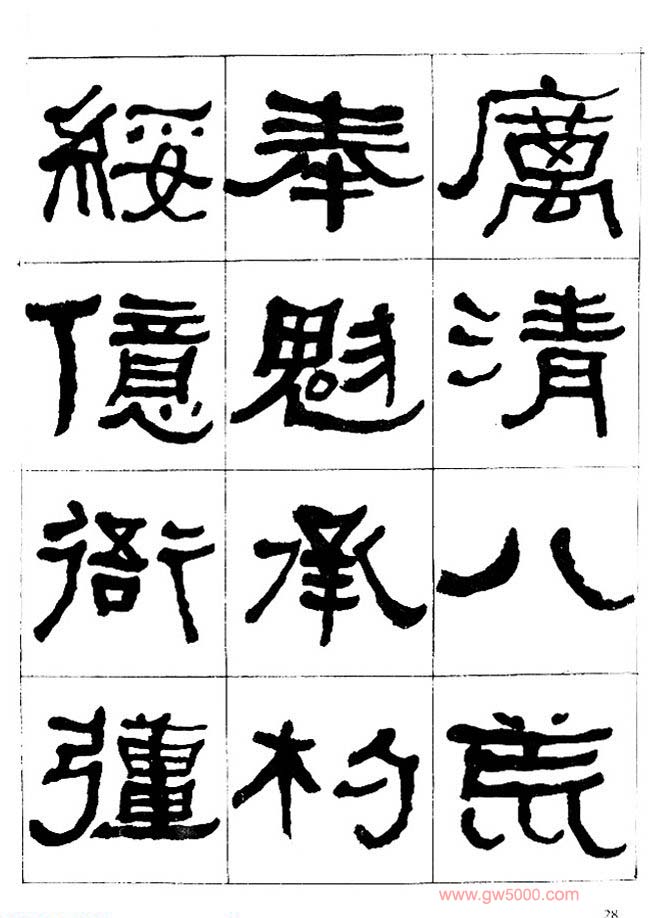 厲清八荒
奉魁承杓
綏億衙彊
www.gw5000.com
28